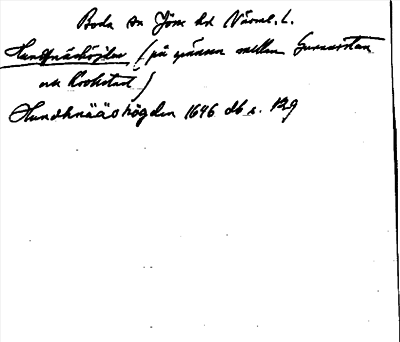 Boda sn Jöse hd Värml. l.
Hundknäshöjden (på gränsen mellan Gunnarstan
och Rookstad)
Hundknääshögden 1646 db s. 129